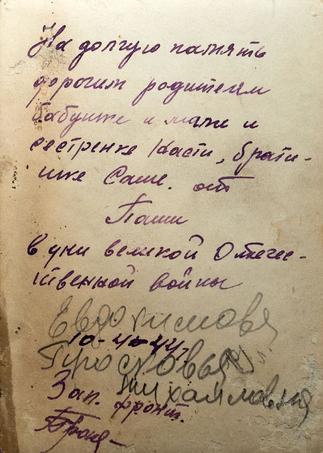 На долгую память
дорогим родителям
бабушке и маме и
сестренке Касти, брати-
шке Саше. от
Паши
в дни великой Отечес-
ственной войны
Евдокимова
10-4-44г.
Просковья
Михайловна
Зап. фронт.